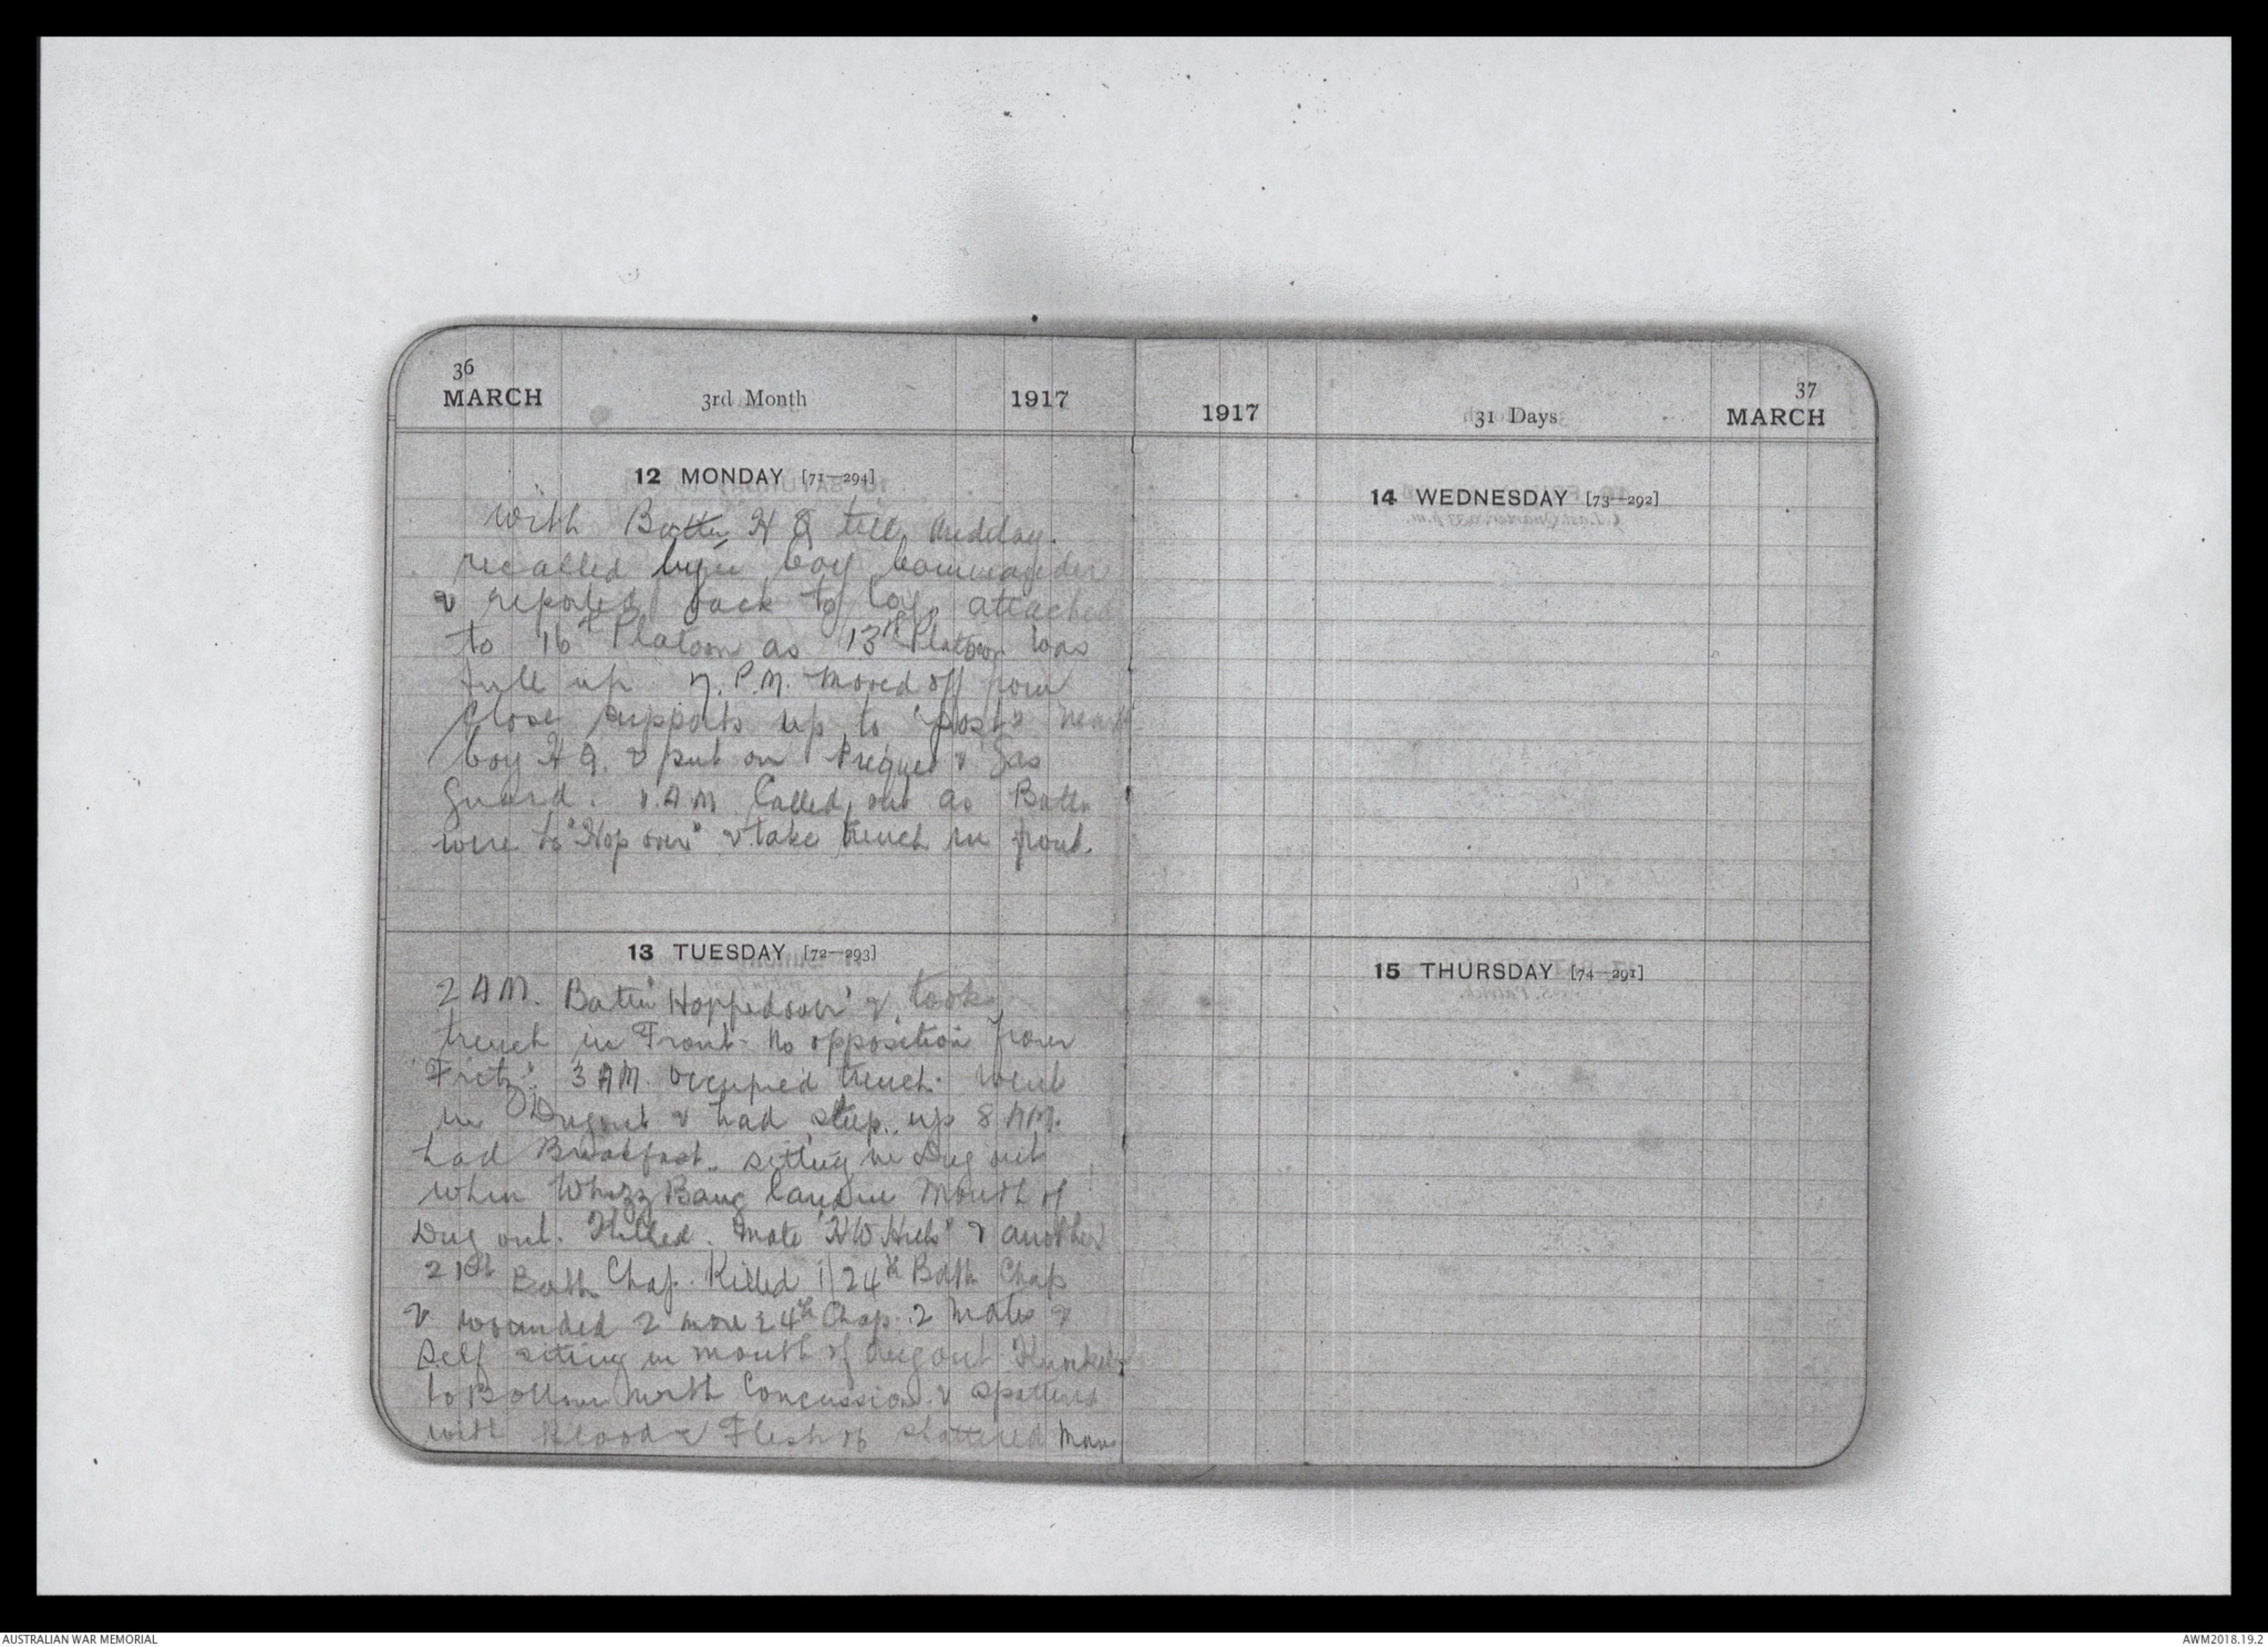 36
MARCH 3rd Month 1917
12 MONDAY [71—294]
with Battn H Q till Midday.
recalled by Coy Commander
& repoted back to Coy. attached
to 16th Platoon as 13th Platoon was
full up. 7. P.M. Moved off from
Close supports up to "post" near
Coy H Q. & put on & Gas
Guard. A M Called out as Battn
were to "Hop over" & take trench in front.
13 TUESDAY [72—293]
2 AM. Battn 'Hopped over' & took
trench in Front - No opposition from
'Fritz'. 3 AM. Occupied trench. Went
in Dugout & had sleep. up 8 AM.
had Breakfast. sitting in Dug out
when Whizz Bang land in Mouth of
Dug out. Killed. Mate & another
21st Battn Chap. Killed 1 24th Battn Chap
& wounded 2 more 24th Chap. 2 Mates &
Self siting in mouth of dugout Knocked
to Bottom with Concussion & spattered
with Blood & Flesh of shattered Man
37
1917 31 Days MARCH
14 WEDNESDAY [73—292]
15 THURSDAY [74—291]
AUSTRALIAN WAR MEMORIAL
AWM2018.19.2